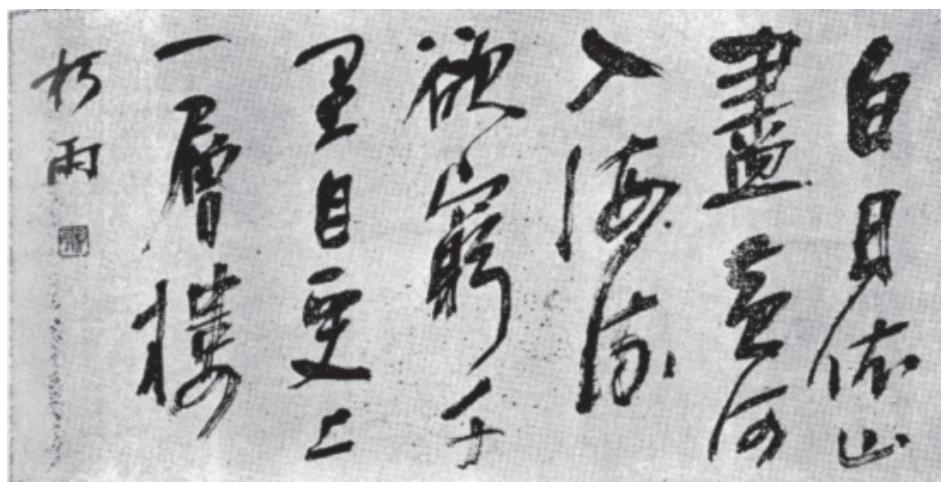 白日依山
盡黄河
入海流
欲窮千
里目更上
一層樓
雨